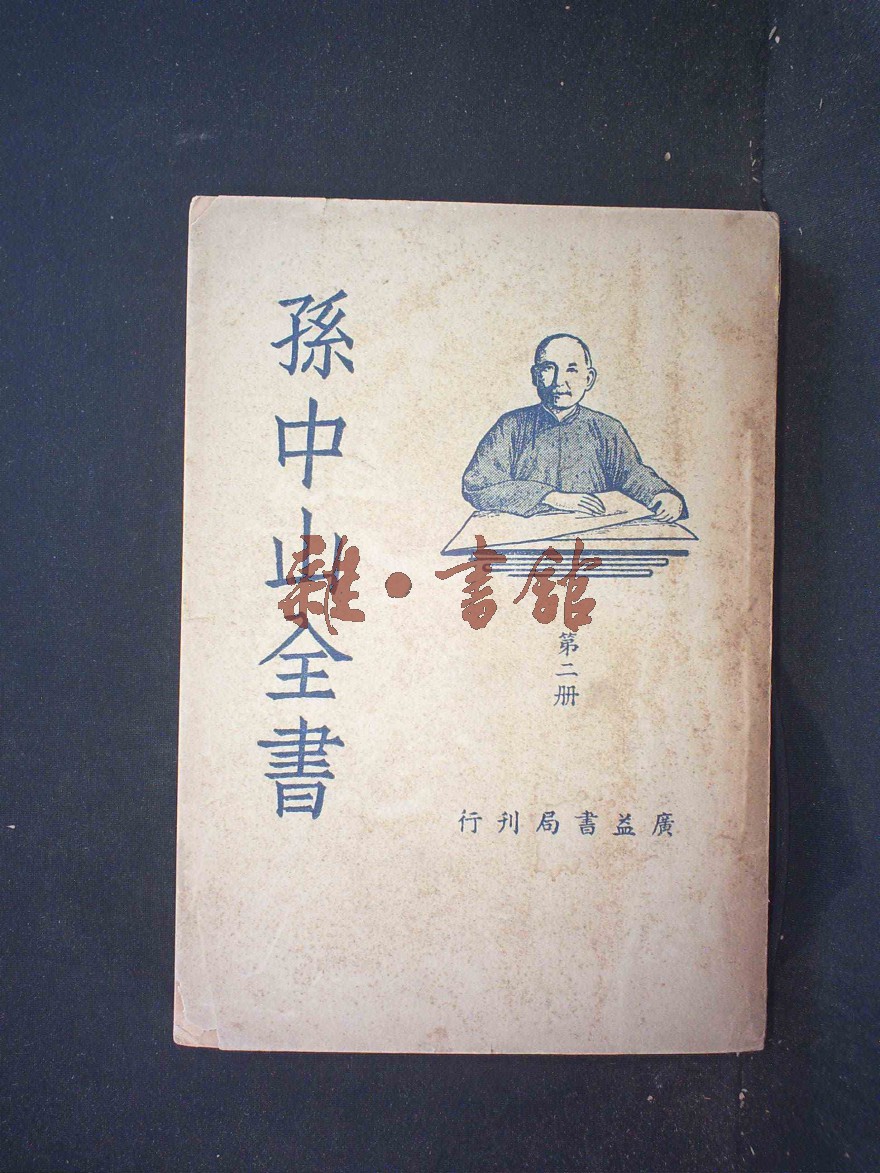 孫中山全書
第二册
行刊局書益廣
雜·書館